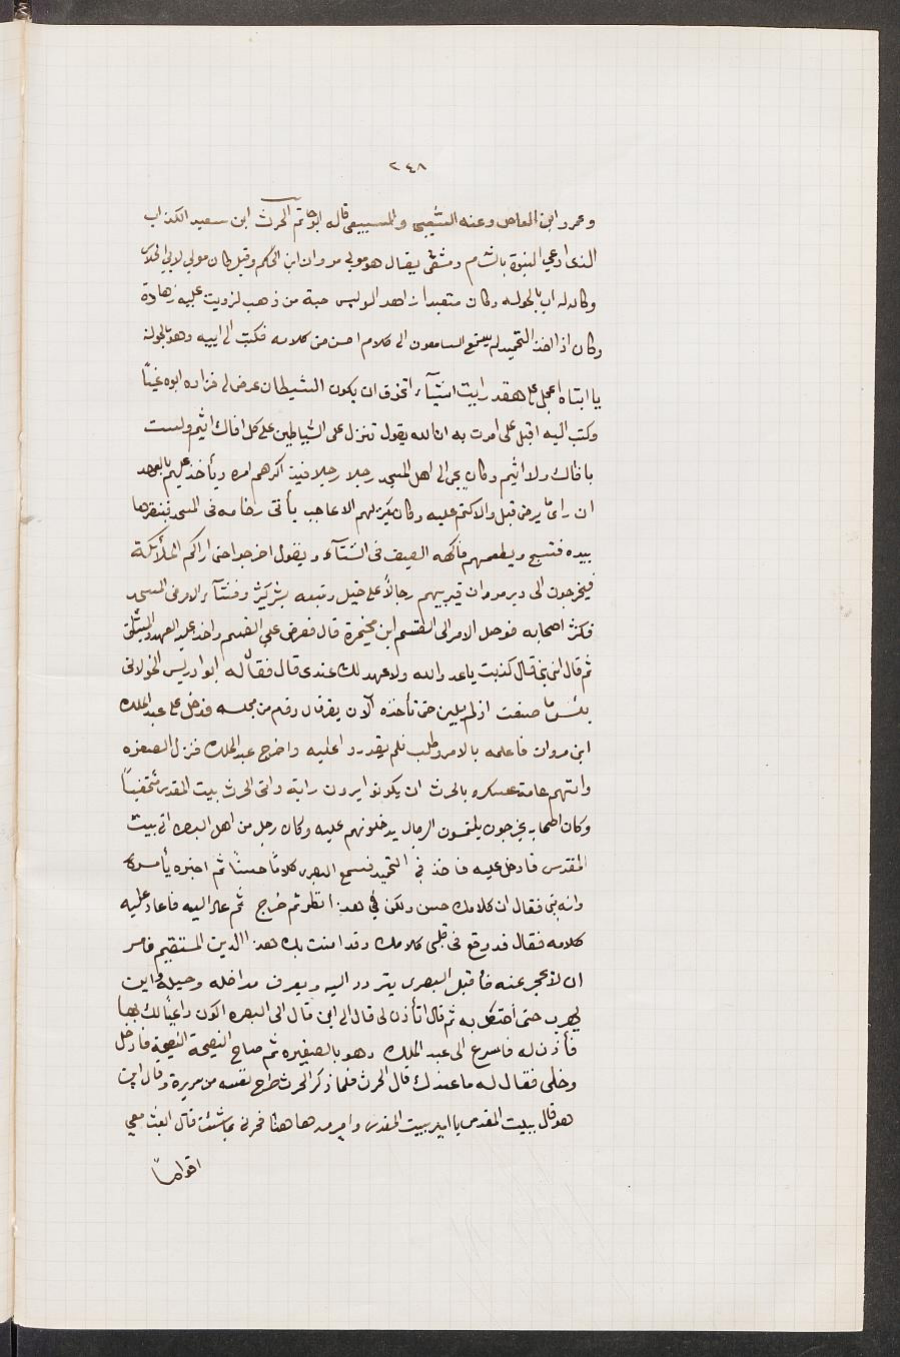 ٢٤٨
وعمرو ابن العاص وعنه الشعبي والمسيب قاله ابو حاتم الحرث ابن سعيد الكذاب
الذى ادعي النبوة بالشام دمشقي يقال هو مولي مروان ابن الحكم وقيل كان مولي لابي الجلاس
وكان له اب بالحوله وكان متعبدا زاهد الو لبس جبة من ذهب لرويت عليه زهادة
وكان اذا اخذ التحميد لم يسمع السامعون الى كلام احسن من كلامه فكتب الى ابيه وهو بالحولة
يا ابتاه اعجل على فقد رايت اشيآء اتخوف ان يكون الشيطان عرض لى فزاده ابوه غيًا
وكتب اليه اقبل على امرت به ان الله يقول تنزل على الشياطين على كل افاك اثيم ولست
بافاك ولا اثيم وكان يجي الى اهل المسجد رجلا رجلا فيذاكرهم امره وياخذ عليهم بالعهد
ان راى ما يرضى قبل والا كتم عليه وكان يريهم الاعاجيب يأتى رخامه فى المسجد فينقرها
بيده فتسبح ويطعمهم فاكهة الصيف فى الشتآء ويقول اخرجوا حتى اراكم الملأئكة
فيخرجون الى دير مروان فيريهم رجالاً على خيل وتبعه بشر كثير وفشآ الامر فى المسجد
فكثر اصحابه فوصل الامر الى القسم ابن مخيمرة قال فعرض علي القسم واخذ عليه العهد والميثاق
ثم قال انى نبى قال كذبت ياعدو الله ولا عهد لك عندى قال فقال له ابوا دريس الخولانى
بئس ما صنعت اذ لم يلين حتى تأخذه آلان يفر قال وقام من مجلسه فدخل على عبد الملك
ابن مروان فاعلمه بالامر وطلب فلم يقدروا عليه واخرج عبد الملك فنزل الصنعزه
واتهم عامة عسكره بالحرث ان يكونوا يرون رايه واتى الحرث بيت المقدس متخفيًا
وكان اصحابه يخرجون يلتمسون الرجال يدخلونهم عليه وكان رجل من اهل البصره اتى بيت
المقدس فادخل عليه فاخذ فى التحميد فسمع البصرى كلامًا حسنًا ثم اخبره بأمره
وانه نبى فقال ان كلامك حسن ولكن في هذا نظر ثم خرج ثم عاد اليه فاعاد عليه
كلامه فقال قد وقع فى قلبى كلامك وقد امنت بك هذا الدين المستقيم فامر
ان لا يحجر عنه فأقبل البصرى يتردد اليه ويعرف مداخله وحيله واين
يهرب حتى اختص به ثم قال اتأذن لى قال الى اين قال الى البصره اكون داعيًا لك بها
فأذن له فاسرع الى عبد الملك وهو بالصنبره ثم صاح النصيحة النصيحة فادخل
وخلى فقال له ما عندك قال الحرث فلما ذكر الحرث طرح نفسه من سريره وقال اين
هو قال ببيت المقدس يا امير بيت المقدس وامير ما ها هنا فمرنى بما شئت قال ابعث معي
اقوامًا